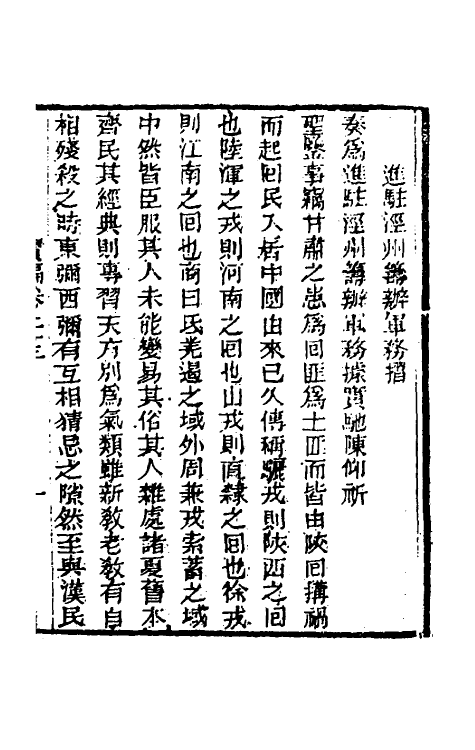 進駐涇州籌辦軍務摺
奏爲進駐涇州籌辦軍務據實馳陳仰祈
聖鑒事竊甘肅之患爲回匪爲土匪而皆由陝回搆禍
而起回民入居中國由來已久傳稱驪戎則陝西之回
也陸渾之戎則河南之回也山戎則直隸之回也徐戎
則江南之回也商曰氐羌遏之域外周兼戎索蓄之域
中然皆臣服其人未能變易其俗其人雜處諸夏舊本
齊民其經典則專習天方別爲氣類雖新教老教有自
相殘殺之時東彌西彌有互相猜忌之隙然至與漢民